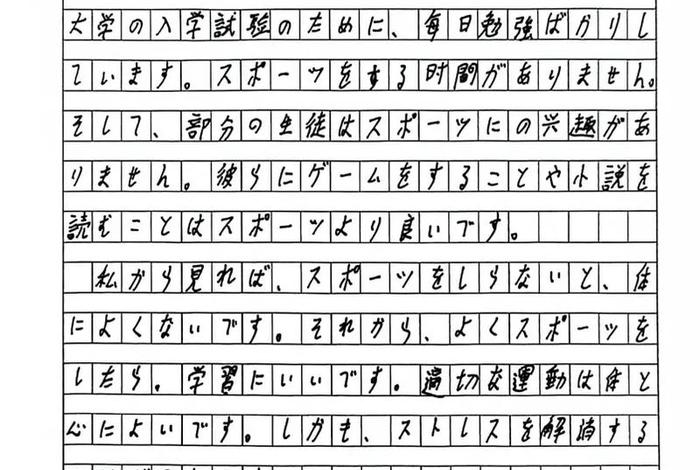 大学の入学試験のために、毎日勉強ばかりし
ています。スポーツをする时間がありません。
そして、部分の生徒はスポーツにの兴趣があ
りません。彼らにゲームをすることや小説を
読むことはスポーツより良いです。
私から見れば、スポーツをしらないと、体
によくないです。それから、よくスポーツを
したら、学習にいいです。適切な運動は体と
心によいです。しかも、ストレスを解消する